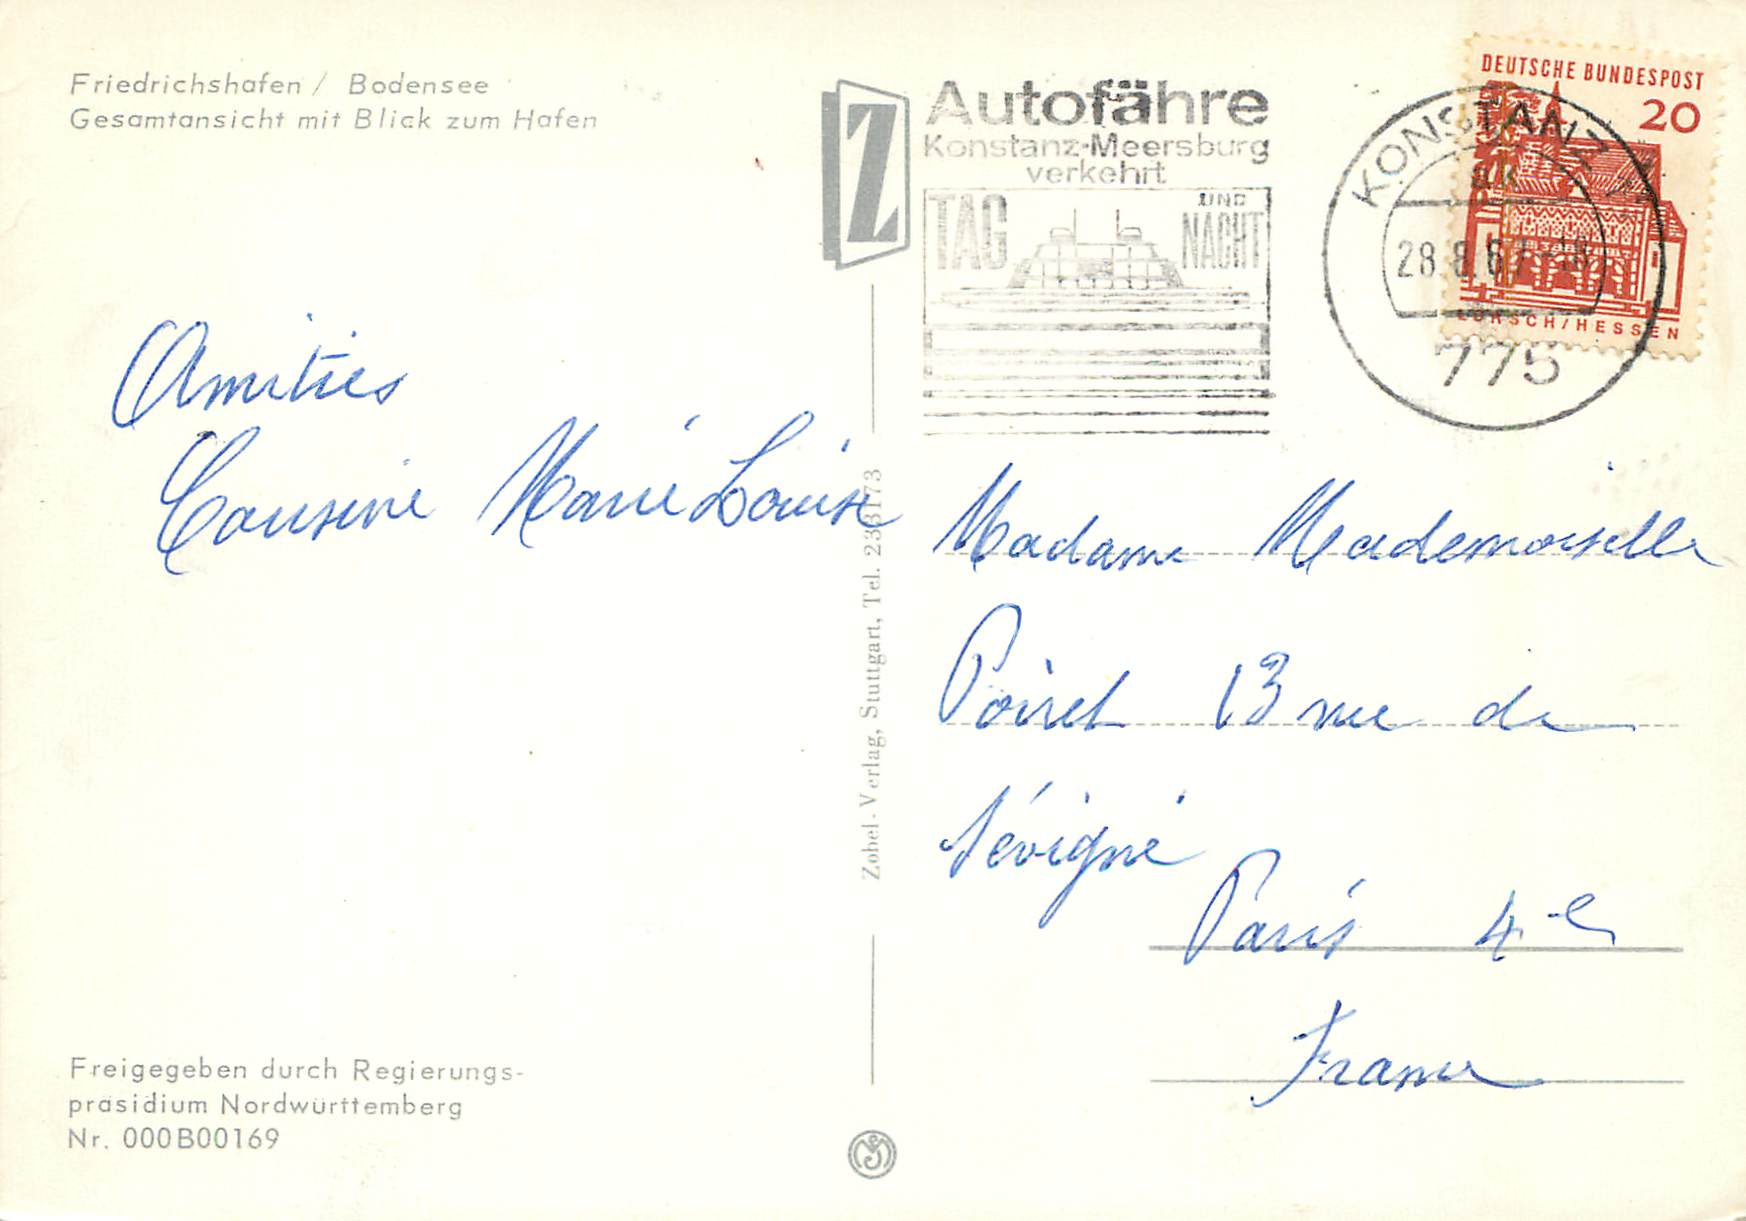 Friedrichshafen / Bodensee
Gesamtansicht mit Blick zum Hafen
Z
Autofähre
Konstanz-Meersburg
verkehrt
TAG UND NACHT
DEUTSCHE BUNDESPOST
20
LORSCH/HESSEN
KONSTANZ 1
28.8.67-18
775
Amitiés
Cousine Marie Louise
Zobel-Verlag, Stuttgart, Tel. 233173
Madame Mademoiselle
Poiret 13 rue de
Sévigné
Paris 4e
France
Freigegeben durch Regierungs-
präsidium Nordwürttemberg
Nr. 000B00169